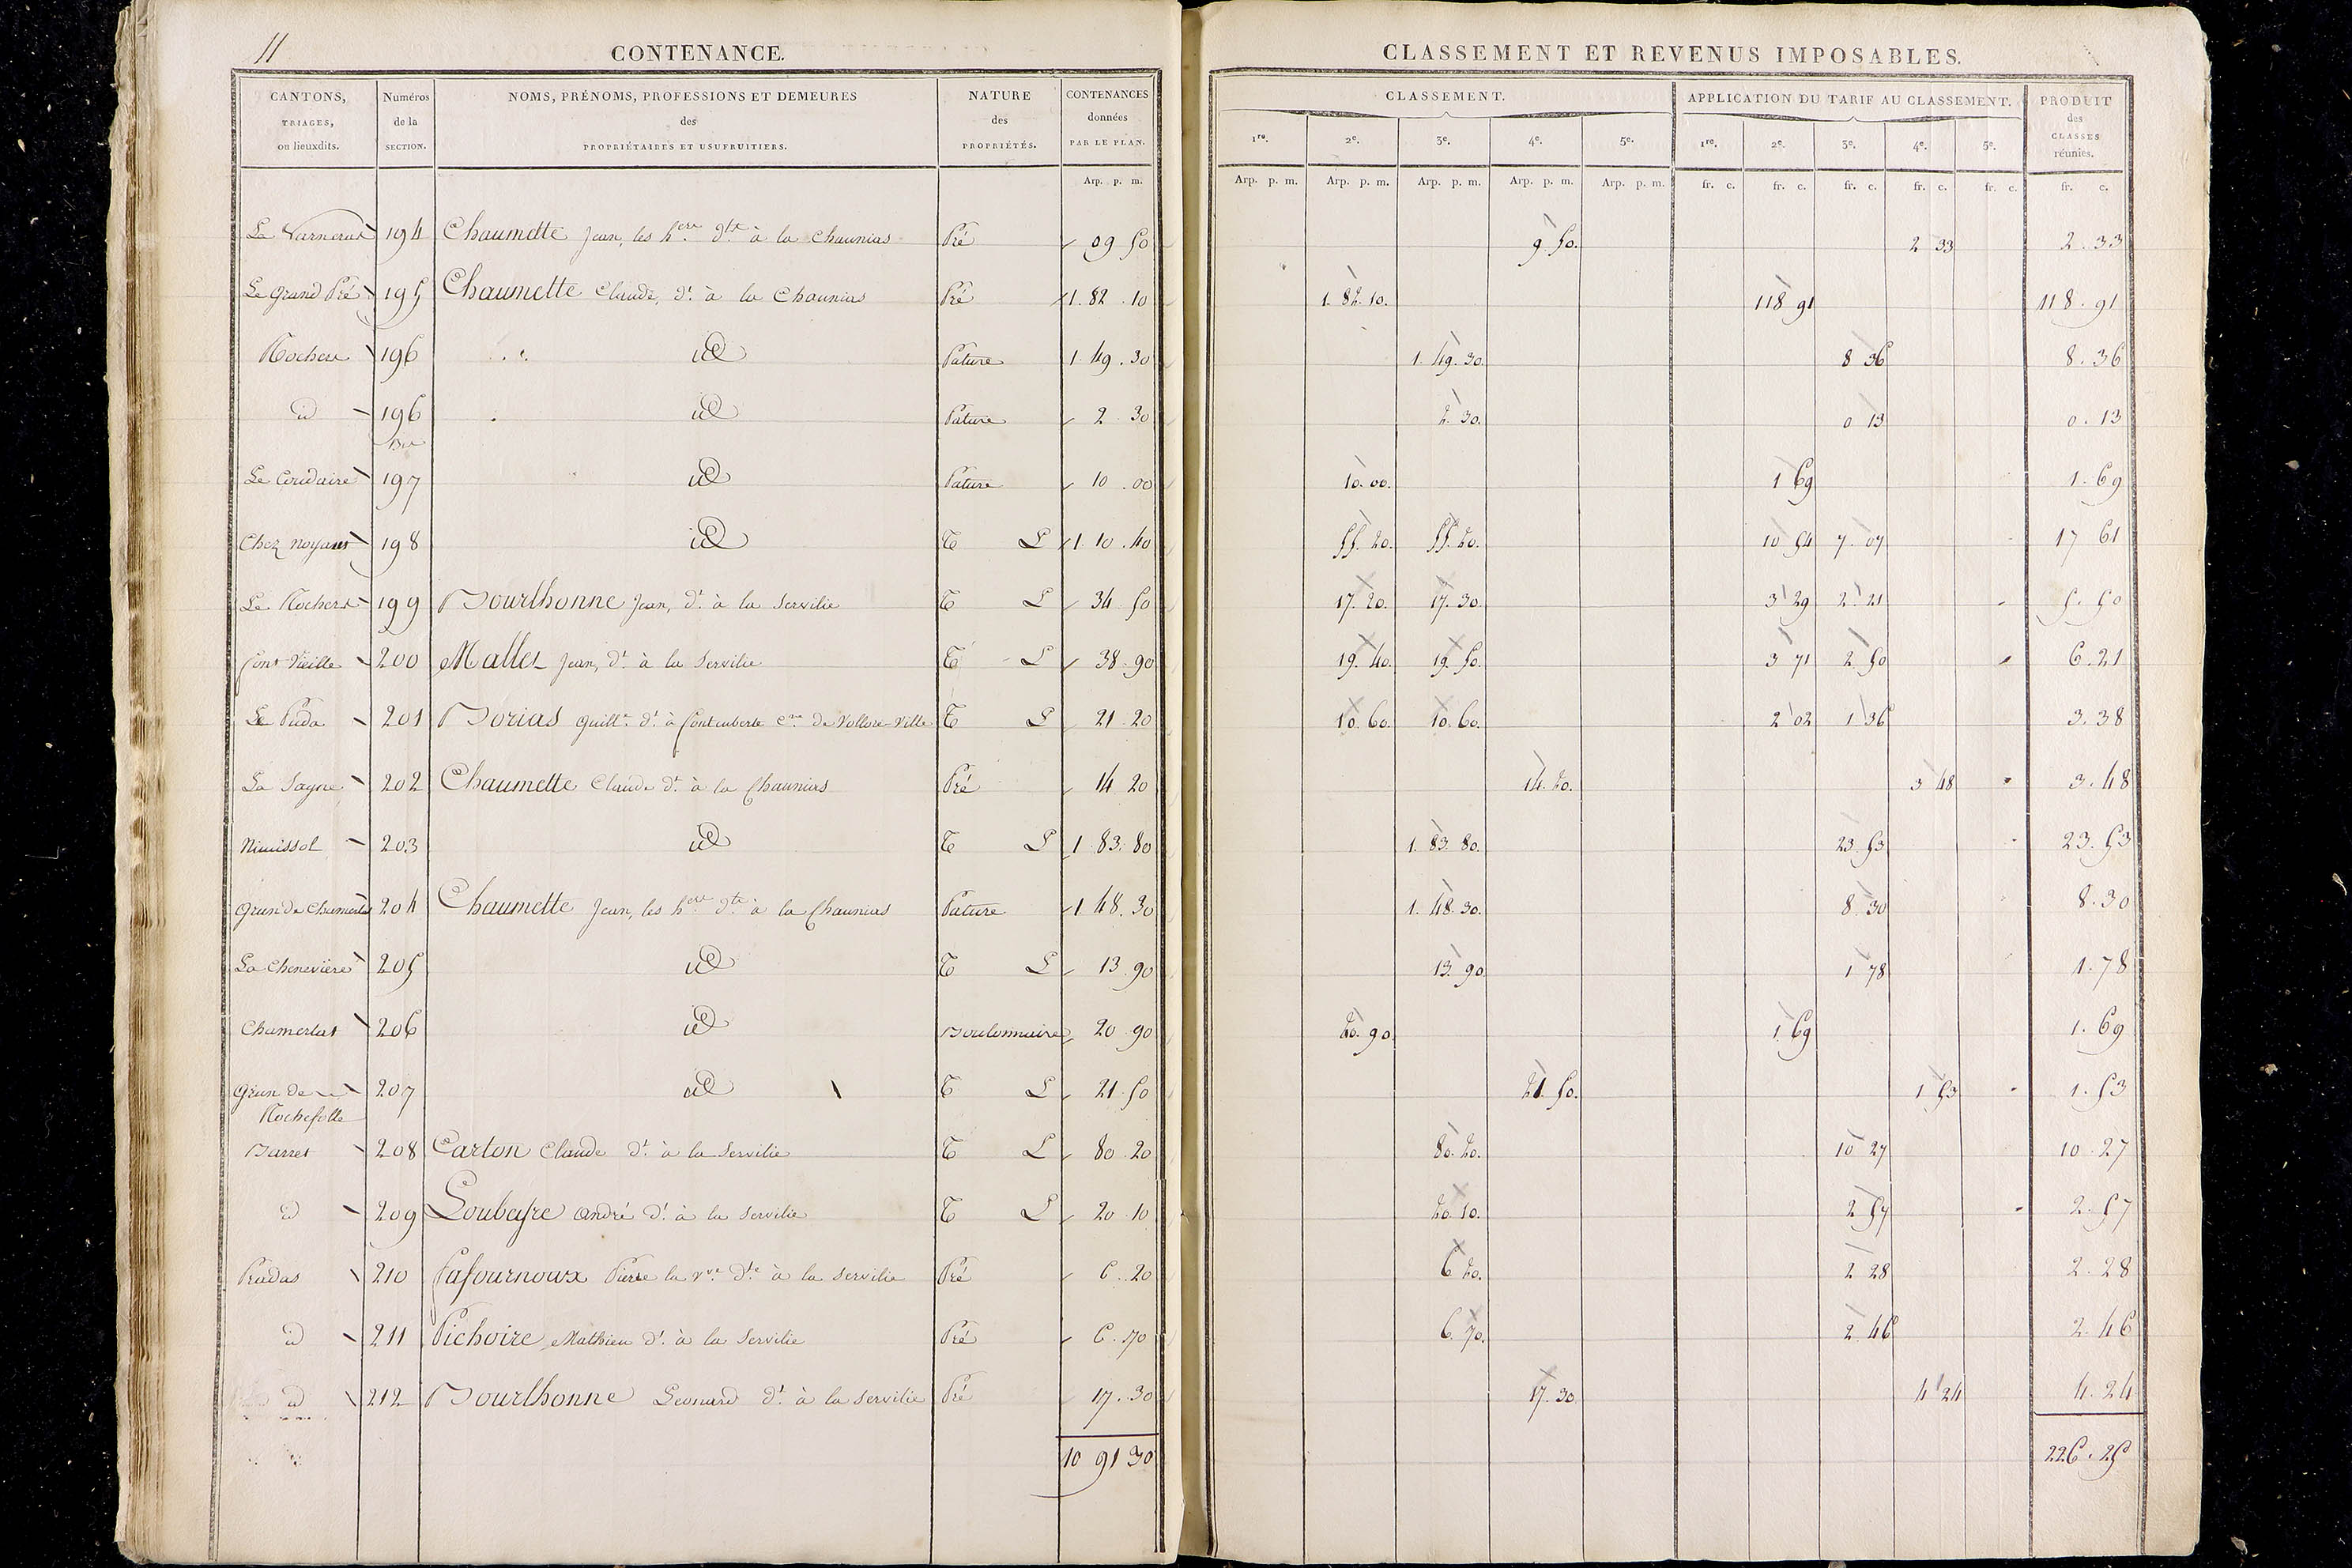 11
CONTENANCE.
CANTONS, TRIAGES, ou lieuxdits.
Numéros de la SECTION.
NOMS, PRÉNOMS, PROFESSIONS ET DEMEURES des PROPRIÉTAIRES ET USUFRUITIERS.
NATURE des PROPRIÉTÉS.
CONTENANCES données PAR LE PLAN.
Arp. p. m.
CLASSEMENT ET REVENUS IMPOSABLES.
CLASSEMENT.
APPLICATION DU TARIF AU CLASSEMENT.
PRODUIT des CLASSES réunies.
1re. 2e. 3e. 4e. 5e. 1re. 2e. 3e. 4e. 5e.
Arp. p. m. Arp. p. m. Arp. p. m. Arp. p. m. Arp. p. m. fr. c. fr. c. fr. c. fr. c. fr. c. fr. c.
194 Chaumette Jean, les hers dts à la Chaunias Pré 09 50 9 50. 2 33 2.33
Le Grand Pré 195 Chaumette Claude, dt. à la Chaunias Pré 1.82.10 1.82.10. 118 91 118.91
Rocher 196 id Pature 1.49.30 1.49.30. 8 36 8.36
id 196 Bis id Pature 2.30 2.30. 0 13 0.13
Le Coudaire 197 id Pature 10.00 10.00. 1 69 1.69
Chez Noyant 198 id T L 1.10.40 55.20. 55.20. 10 54 7.07 17 61
Le Rochers 199 Bourlhonne Jean, dt. à la Servilie T L 34 50 17.20. 17.30. 3 29 2.21 5.50
font Vieille 200 Mallet Jean, dt. à la Servilie T L 38.90 19.40. 19.50. 3 71 2 50 6.21
Le Puda 201 Borias Guille. dt. à fontcuberte cne. de Vollore Ville T L 21 20 10.60. 10.60. 2 02 1 36 3.38
La Sagne 202 Chaumette Claude dt. à la Chaunias Pré 14 20 14.20. 3 48 3.48
203 id T L 1.83.80 1.83.80. 23.53 23.53
204 Chaumette Jean, les hers dts à la Chaunias Pature 1.48.30 1.48.30. 8 30 8.30
La Chenevière 205 id T L 13.90 13.90 1 78 1.78
Chamerlat 206 id 20.90 20.90 1.69 1.69
Grun de Rochefolle 207 id T L 21.50 21.50. 1 53 1.53
Barret 208 Carton Claude dt. à la Servilie T L 80.20 80.20. 10 27 10.27
id 209 Loubeyre André dt. à la Servilie T L 20 10 20.10. 2 57 2.57
Pradas 210 Lafournoux Pierre la vve. dte. à la Servilie Pré 6.20 6 20. 2 28 2.28
id 211 Pichoire, Mathieu dt. à la Servilie Pré 6.70 6.70. 2.46 2.46
id 212 Bourlhonne Leonard dt. à la Servilie Pré 17.30 17.30 4 24 4.24
10 91 30 226.25